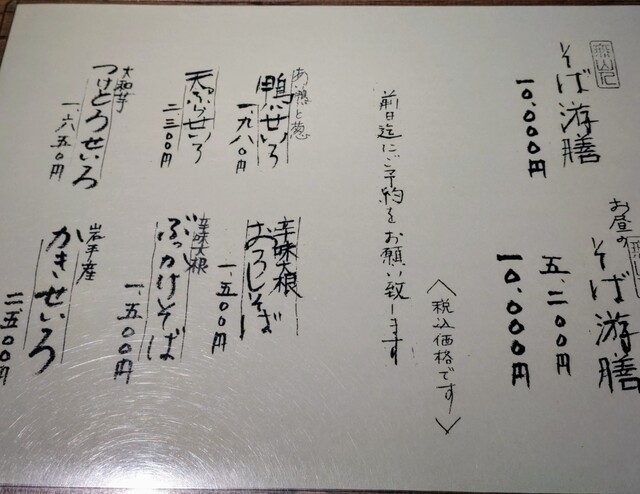 そば游膳
一〇、〇〇〇円
お昼の
そば游膳
五、二〇〇円
一〇、〇〇〇円
〈税込価格です〉
前日迄にご予約をお願い致します
あい鴨と葱
鴨せいろ
一、九八〇円
天ぷらせいろ
二、三〇〇円
大和芋
つけとろせいろ
一、六五〇円
辛味大根
おろしそば
一、五〇〇円
辛味大根
ぶっかけそば
一、五〇〇円
岩手産
かきせいろ
二、五〇〇円